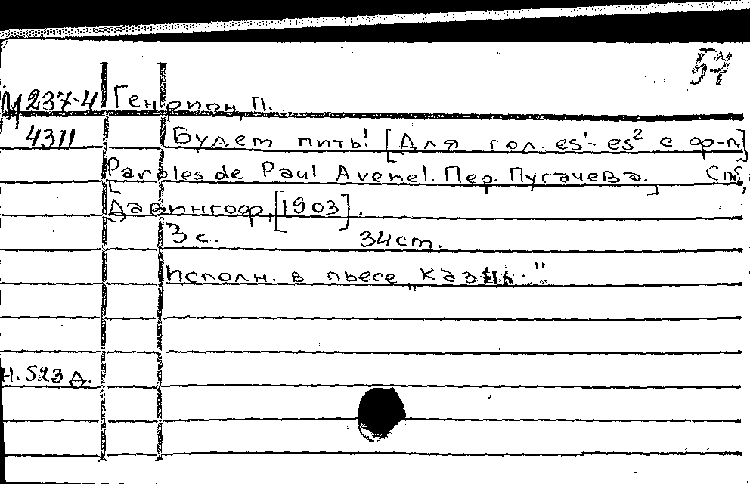 54
М 237-4 Генрион, П.
4311 Будем пить! [Для гол. es¹-es² с ф-п]
Paroles de Paul Avenel. Пер. Пугачева. Спб,
Давингоф, [1903].
3 с. 34 ст.
Исполн. в пьесе „
Н. 523 д.